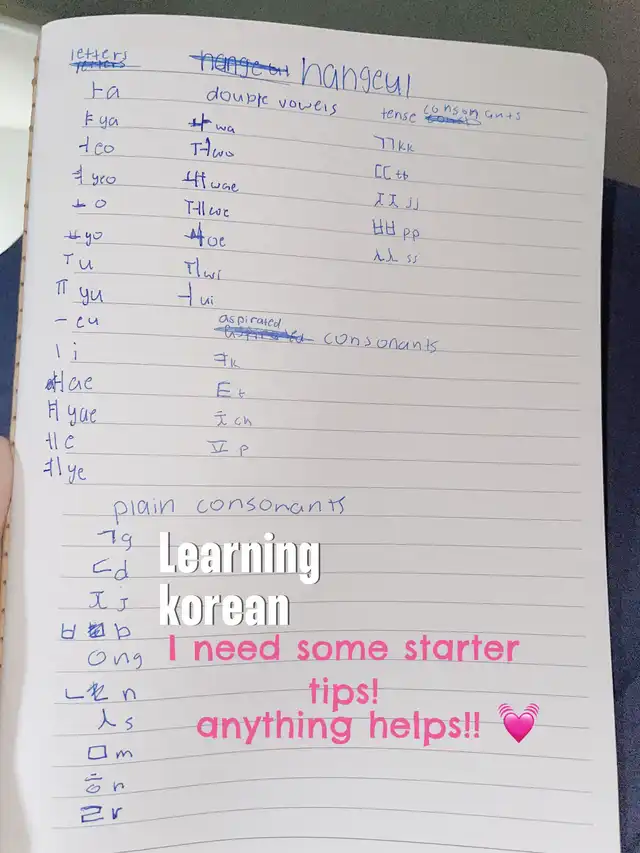 letters
hangeul
ㅏ a
ㅑ ya
ㅓ eo
ㅕ yeo
ㅗ o
ㅛ yo
ㅜ u
ㅠ yu
ㅡ eu
ㅣ i
ㅐ ae
ㅒ yae
ㅔ e
ㅖ ye
double vowels
ㅘ wa
ㅝ wo
ㅙ wae
ㅞ we
ㅚ oe
ㅟ wi
ㅢ ui
tense consonants
ㄲ kk
ㄸ tt
ㅉ jj
ㅃ pp
ㅆ ss
aspirated consonants
ㅋ k
ㅌ t
ㅊ ch
ㅍ p
plain consonants
ㄱ g
ㄷ d
ㅈ j
ㅂ b
ㅇ ng
ㄴ n
ㅅ s
ㅁ m
ㅎ h
ㄹ r
Learning
korean
I need some starter
tips!
anything helps!! 💓